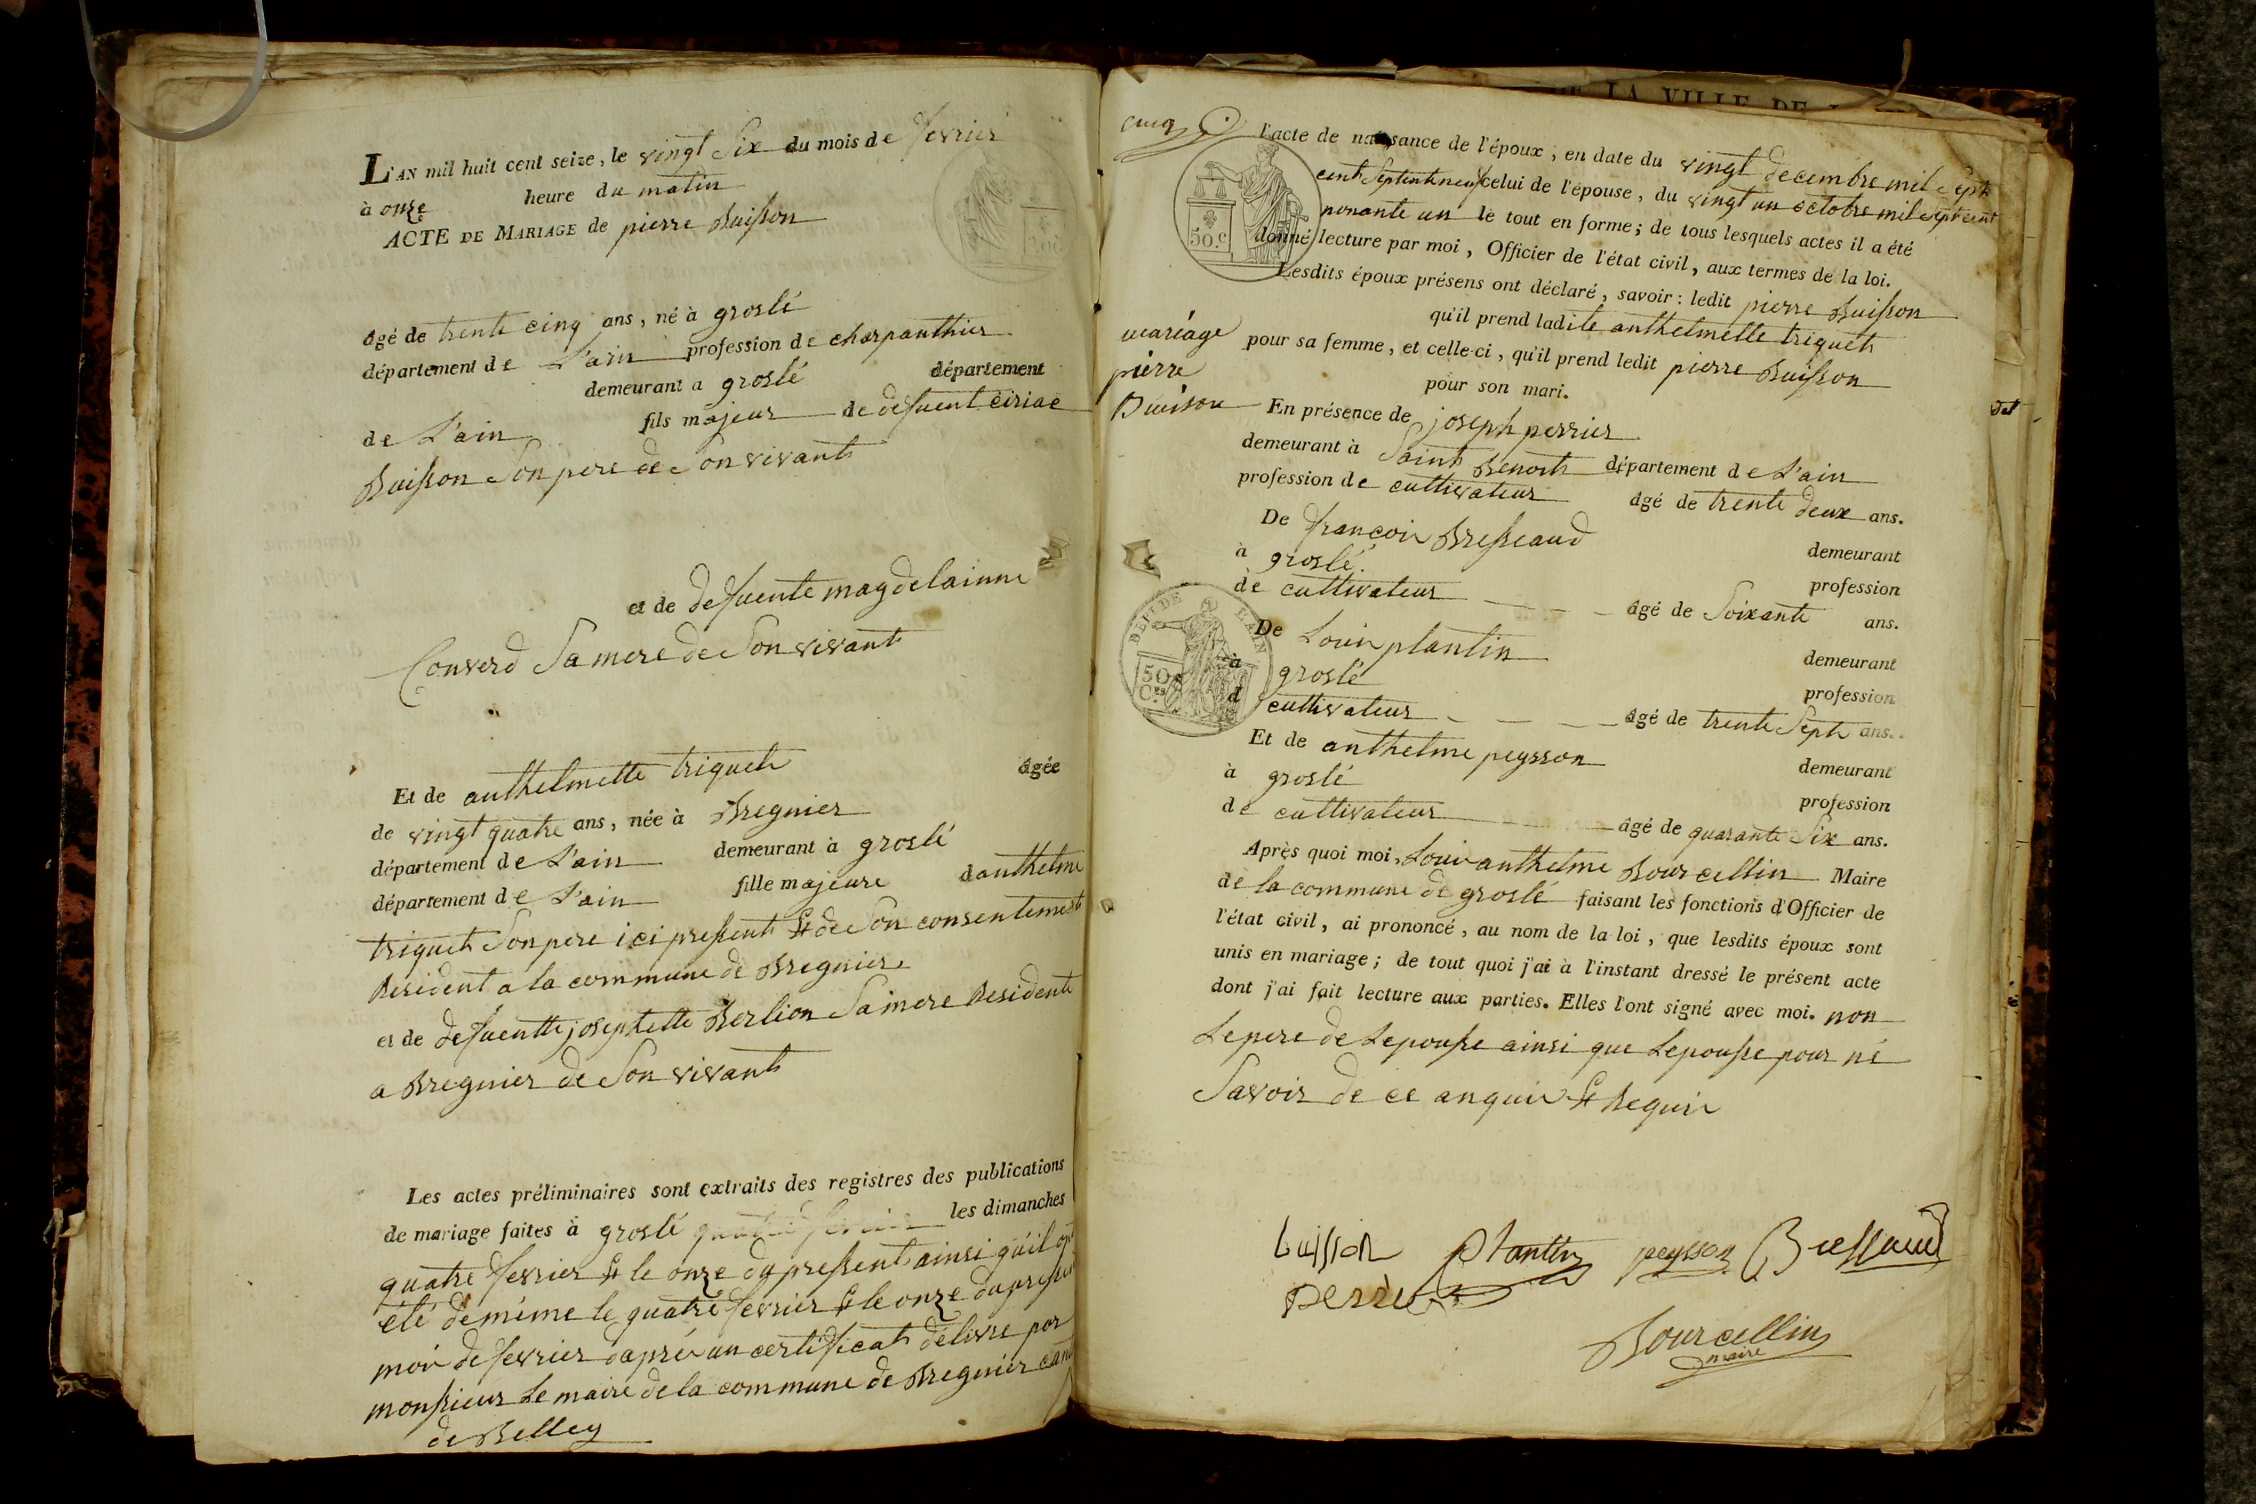 L'AN mil huit cent seize, le vingt Six du mois de fevrier
à onze heure du matin
ACTE DE MARIAGE de pierre Buisson
âgé de trente cinq ans, né à groslé
département de L'ain profession de charpanthier
demeurant a groslé département
de L'ain fils majeur de defuent ciriac
Buisson Son pere de Son vivant
et de defuente magdelainne
Converd Sa mere de Son vivant
Et de anthelmette triquet âgée
de vingt quatre ans, née à Bregnier
département de L'ain demeurant à groslé
département de L'ain fille majeure danthelme
triquet Son pere ici present et de Son consentement
Résident a la commune de Bregnier
et de defuentte josephette Berlion Sa mere Residente
a Bregnier de Son vivant
Les actes préliminaires sont extraits des registres des publications
de mariage faites à groslé les dimanches
quatre fevrier et le onze du present ainsi qu'il
été de même le quatre fevrier et le onze du present
mois de fevrier daprés un certificat délivre par
monsieur Le maire de la commune de Bregnier
de Belley
cinq
l'acte de naissance de l'époux, en date du vingt decembre mil Sept
cent Septente neuf celui de l'épouse, du vingt un octobre mil Sept cent
nonante un le tout en forme; de tous lesquels actes il a été
donné lecture par moi, Officier de l'état civil, aux termes de la loi.
Lesdits époux présens ont déclaré, savoir: ledit pierre Buisson
qu'il prend ladite anthelmette triquet
mariage
pierre
Buisson
pour sa femme, et celle-ci, qu'il prend ledit pierre Buisson
pour son mari.
En présence de joseph perrier
demeurant à Saint Benoit département de L'ain
profession de cultivateur âgé de trente deux ans.
De françois Bresseaud demeurant
à groslé. profession
de cultivateur âgé de Soixante ans.
50.c
DEP.T DE L'AIN
50
C.es
De Louis plantin demeurant
à groslé profession
d cultivateur âgé de trente Sept ans.
Et de anthelme peysson demeurant
à groslé profession
de cultivateur âgé de quarante Six ans.
Après quoi moi, Louis anthelme Bourcellin Maire
de la commune de groslé faisant les fonctions d'Officier de
l'état civil, ai prononcé, au nom de la loi, que lesdits époux sont
unis en mariage; de tout quoi j'ai à l'instant dressé le présent acte
dont j'ai fait lecture aux parties. Elles l'ont signé avec moi. non
Le pere de Lepouse ainsi que Lepouse pour né
Savoir de ce anquis et Requis
buission plantin peysson Bressaud
perrier
Bourcellin
maire